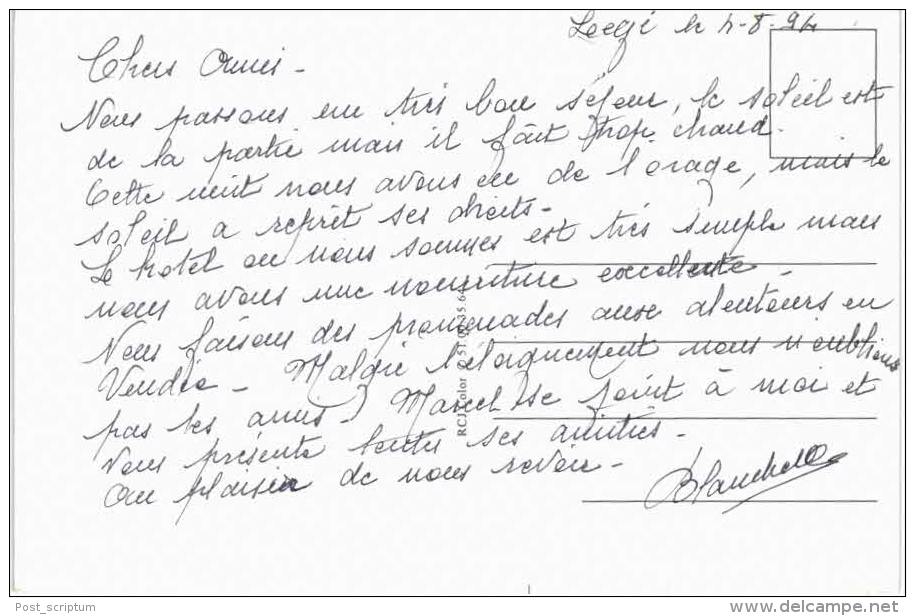 Legé le 4-8-94
Chers Amis -
Nous passons un très bon séjour, le soleil est
de la partie mais il fait trop chaud.
Cette nuit nous avons eu de l'orage, mais le
soleil a reprit ses droits -
Le hotel ou nous sommes est très simple mais
nous avons une nourriture excellente -
Nous faisons des promenades aux alentours en
Vendée - Malgré l'éloignement nous n'oublions
pas les amis - Marcel se joint à moi et
vous présente toutes ses amitiés -
Au plaisir de nous revoir -
Blanche
RCJ Color © 51.09.35.6
Post_scriptum
delcampe.net